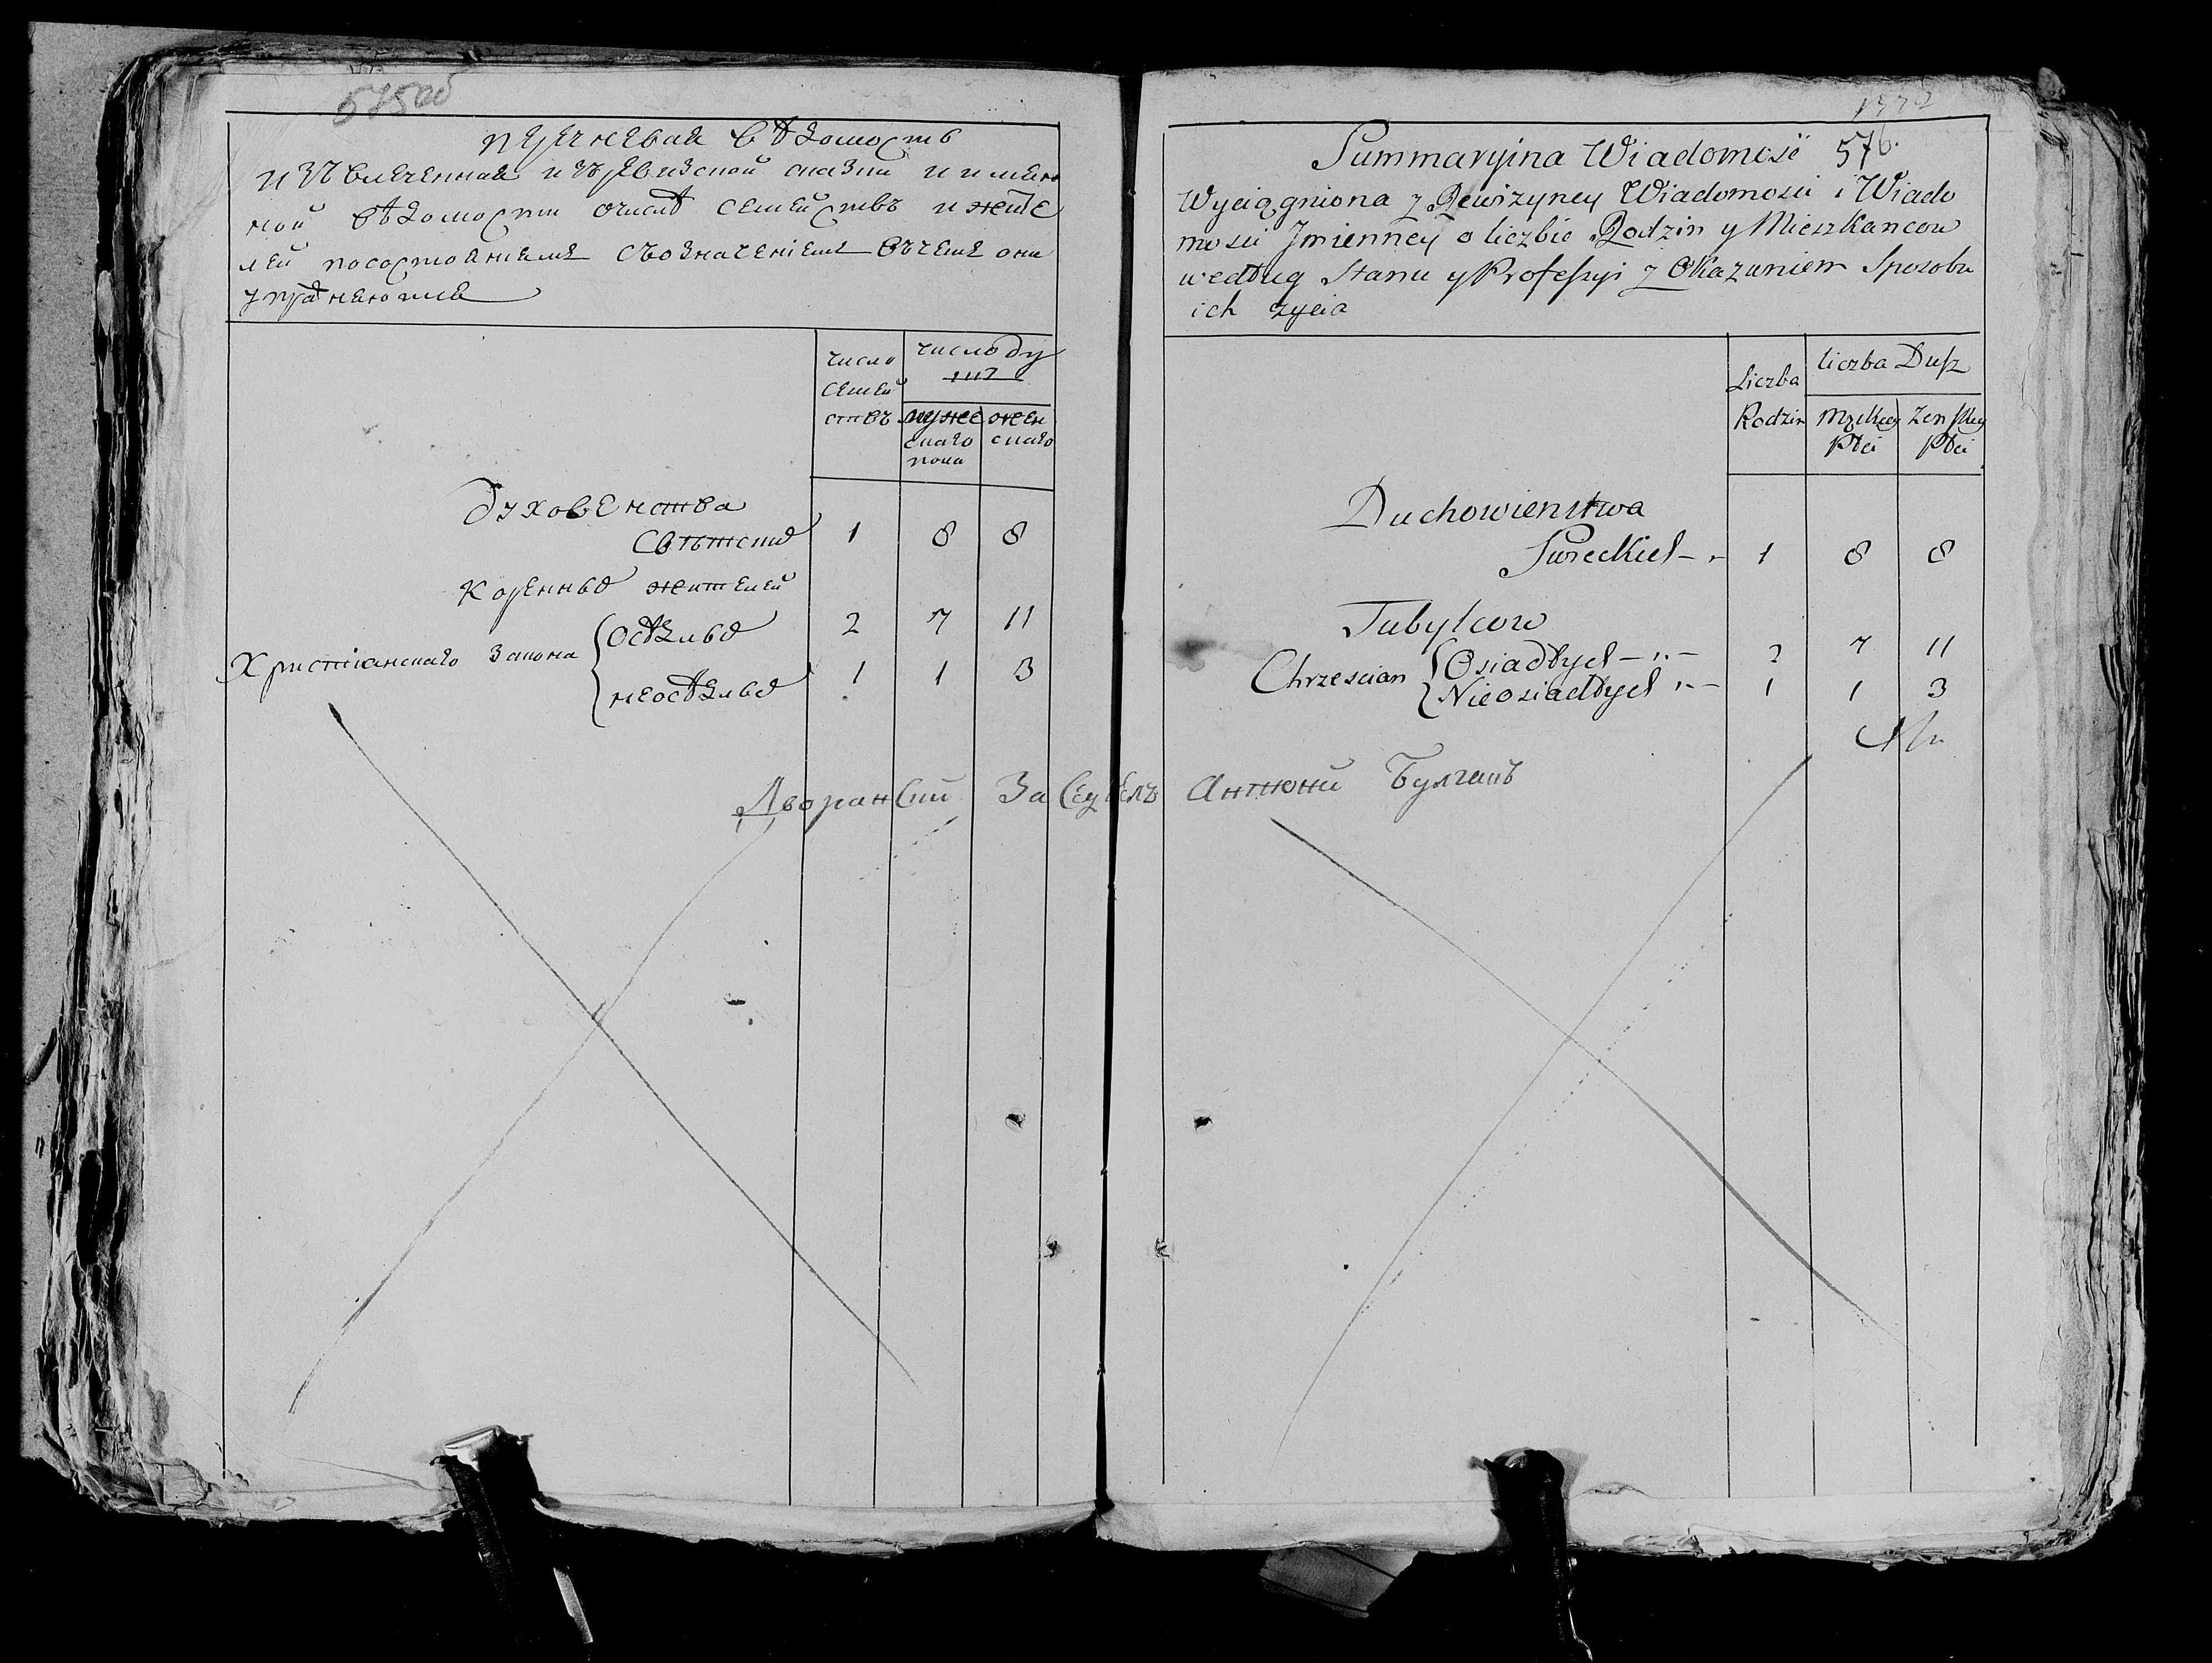 575 об
перечневая вѣдомость
извлеченная изъ ревизской сказки и имян
ной вѣдомости о числѣ семействъ и жите
лей по состояніямъ съ означеніемъ въ чемъ они
упражняются
число
семей
ствъ
число ду
шъ
мужес
скаго
пола
жен
скаго
духовенства
Свѣтск 1 8 8
Коренныхъ жителей
Христіанскаго Закона
осѣдлыхъ 2 7 11
неосѣдлыхъ 1 1 3
Дворянскій Засѣдатель Антоній Булгакъ
576.
Summaryina Wiadomość
Wyciągniona z Rewizyney Wiadomości i Wiado
mości Jmienney o liczbie Rodzin y Mieszkancow
według Stanu y Professyi z Okazaniem Sposobu
ich życia
Liczba
Rodzin
liczba Dusz
Męzkiey
Płci
Zenskiey
Płci
Duchowienstwa
Swieckich 1 8 8
Tubylcow
Chrzescian
Osiadłych 2 7 11
Nieosiadłych 1 1 3